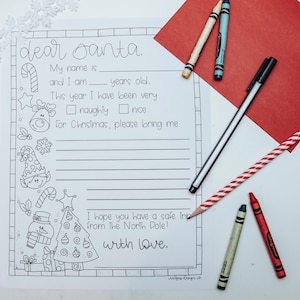 dear santa,
My name is
and i am ____ years old.
This year I have been very
naughty nice
For Christmas, please bring me
I hope you have a safe
from the North Pole!
with love,